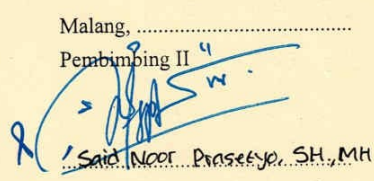 Malang, ....................................
Pembimbing II
Said Noor Prasetyo, SH., MH